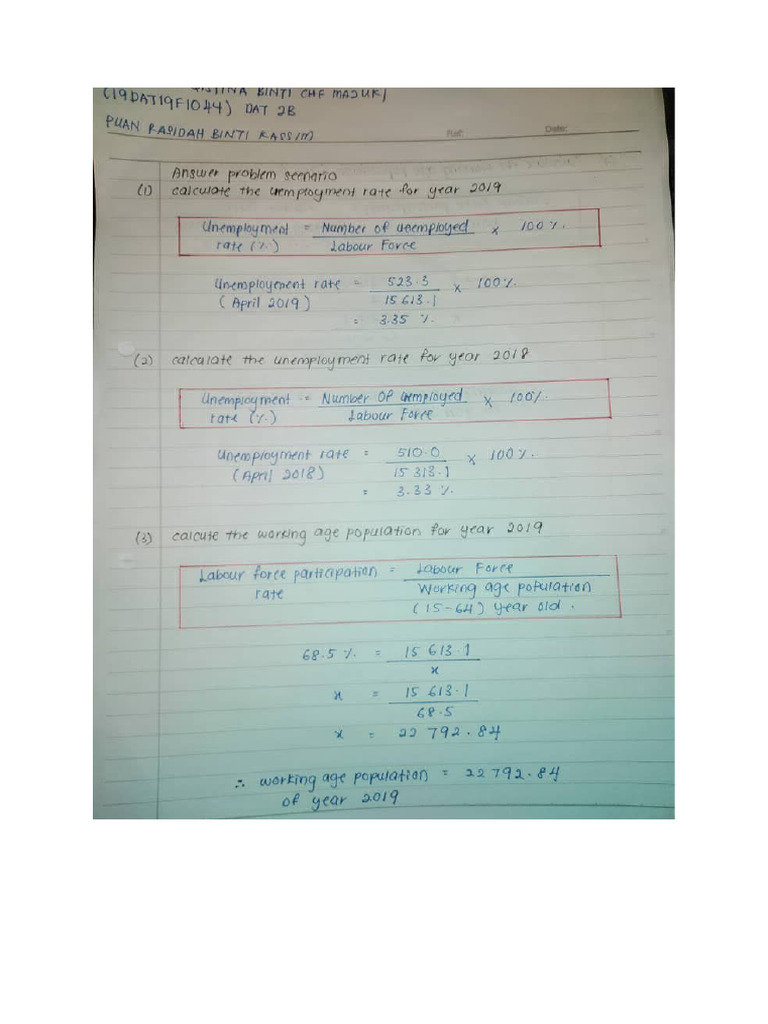 BINTI CHE MAJUKI
(19DAT19F1044) DAT 2B
PUAN RASIDAH BINTI KASSIM
Ref: Date:
Answer problem scenario
(1) calculate the unemployment rate for year 2019
Unemployment = Number of unemployed x 100%.
rate (%) Labour Force
Unemployement rate = 523.3 x 100%.
(April 2019) 15 613.1
= 3.35 %.
(2) calculate the unemployment rate for year 2018
Unemployment = Number Of unemployed x 100%.
rate (%) Labour Force
Unemployment rate = 510.0 x 100%.
(April 2018) 15 313.1
= 3.33 %.
(3) calcute the working age population for year 2019
Labour force participation = Labour Force
rate Working age population
(15-64) year old.
68.5 % = 15 613.1
x
x = 15 613.1
68.5
x = 22 792.84
∴ working age population = 22 792.84
of year 2019